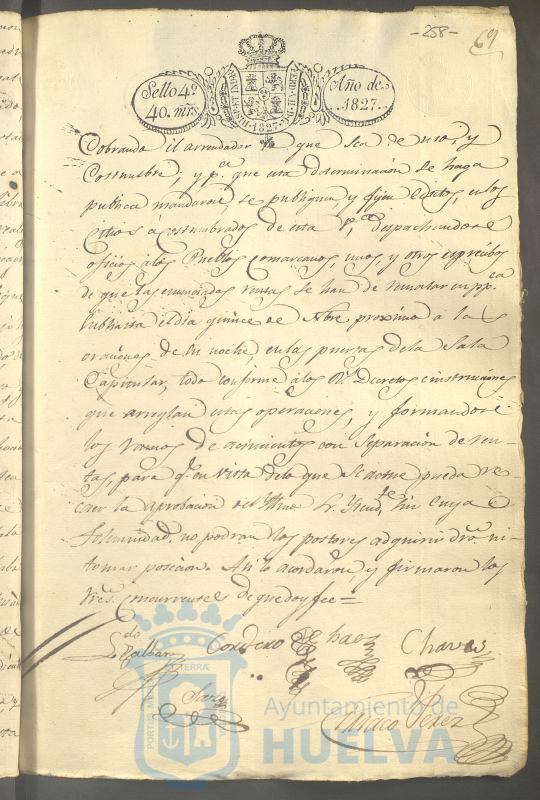 -258-
69
Sello 4º
40. mrs.
Año de
1827.
HISPANIAR. REX. 1827
Cobrando el arrendador que sea de uso, y
Costumbre, y pª que esta determinacion se haga
publica mandaron se publiquen y fijen Edictos, en los
sitios acostumbrados de esta Vª, despachandose
oficios alos Pueblos Comarcanos, unos, y otros expresibos
de que las enunciadas rentas se han de rematar en ppca
Subhasta el dia quince de Nbre. proximo a las
oraciones de su noche en las puertas dela Sala
Capitular, todo conforme alos Rs. Decretos e instrucciones
que arreglan estas operaciones, y formandose
los ramos de acimientos con Separacion de ren-
tas, para q. en vista delo que se actue, pueda re
caer la aprobacion del Ylmo. Sr. Yntdte. sin cuya
Solemnidad, no podran los postores adquirir dro. ni
tomar posecion. Asi lo acordaron, y firmaron los
Sres. Concurrentes de que doy fee=
Ldo
Cordero
Chaves
Perez
PORTUS MARIS
TERRAE
Ayuntamiento de
HUELVA